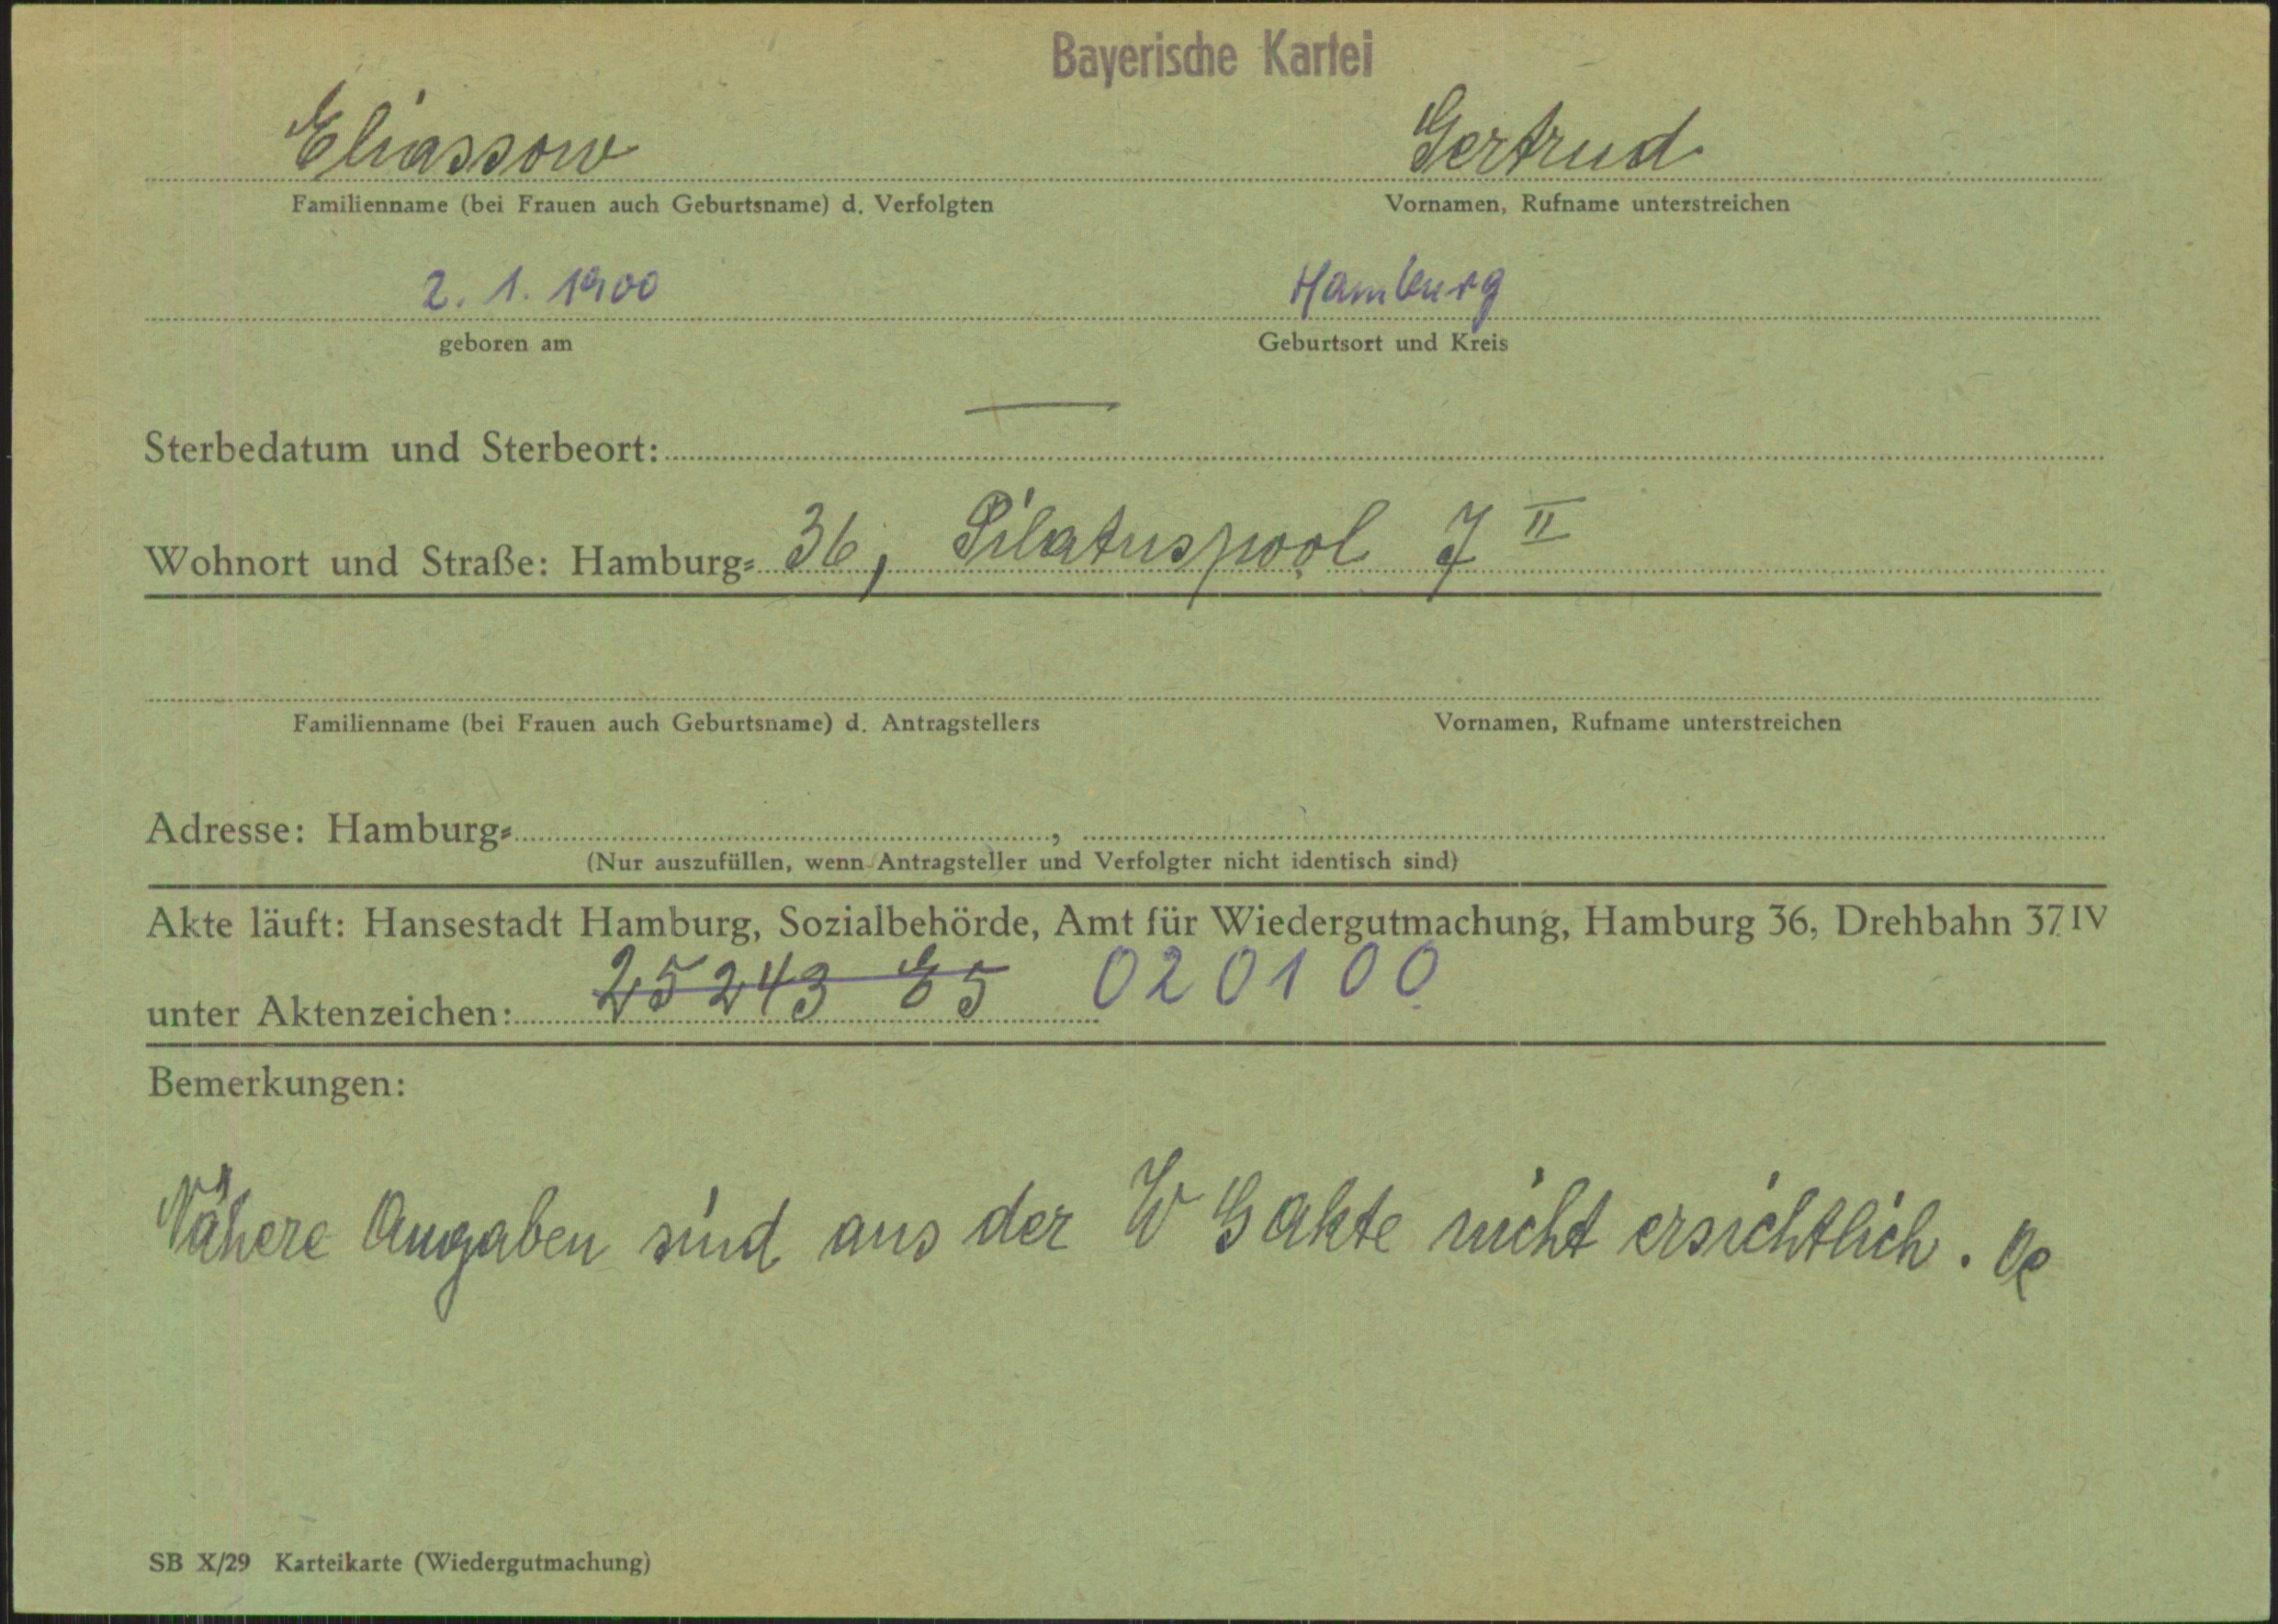 Bayerische Kartei
Eliassow Gertrud
Familienname (bei Frauen auch Geburtsname) d. Verfolgten Vornamen, Rufname unterstreichen
2. 1. 1900 Hamburg
geboren am Geburtsort und Kreis
Sterbedatum und Sterbeort: —
Wohnort und Straße: Hamburg= 36, Pilatuspool 7 II
Familienname (bei Frauen auch Geburtsname) d. Antragstellers Vornamen, Rufname unterstreichen
Adresse: Hamburg= ,
(Nur auszufüllen, wenn Antragsteller und Verfolgter nicht identisch sind)
Akte läuft: Hansestadt Hamburg, Sozialbehörde, Amt für Wiedergutmachung, Hamburg 36, Drehbahn 37 IV
unter Aktenzeichen: 25243 E5 020100
Bemerkungen:
Nähere Angaben sind aus der WGakte nicht ersichtlich.
SB X/29 Karteikarte (Wiedergutmachung)